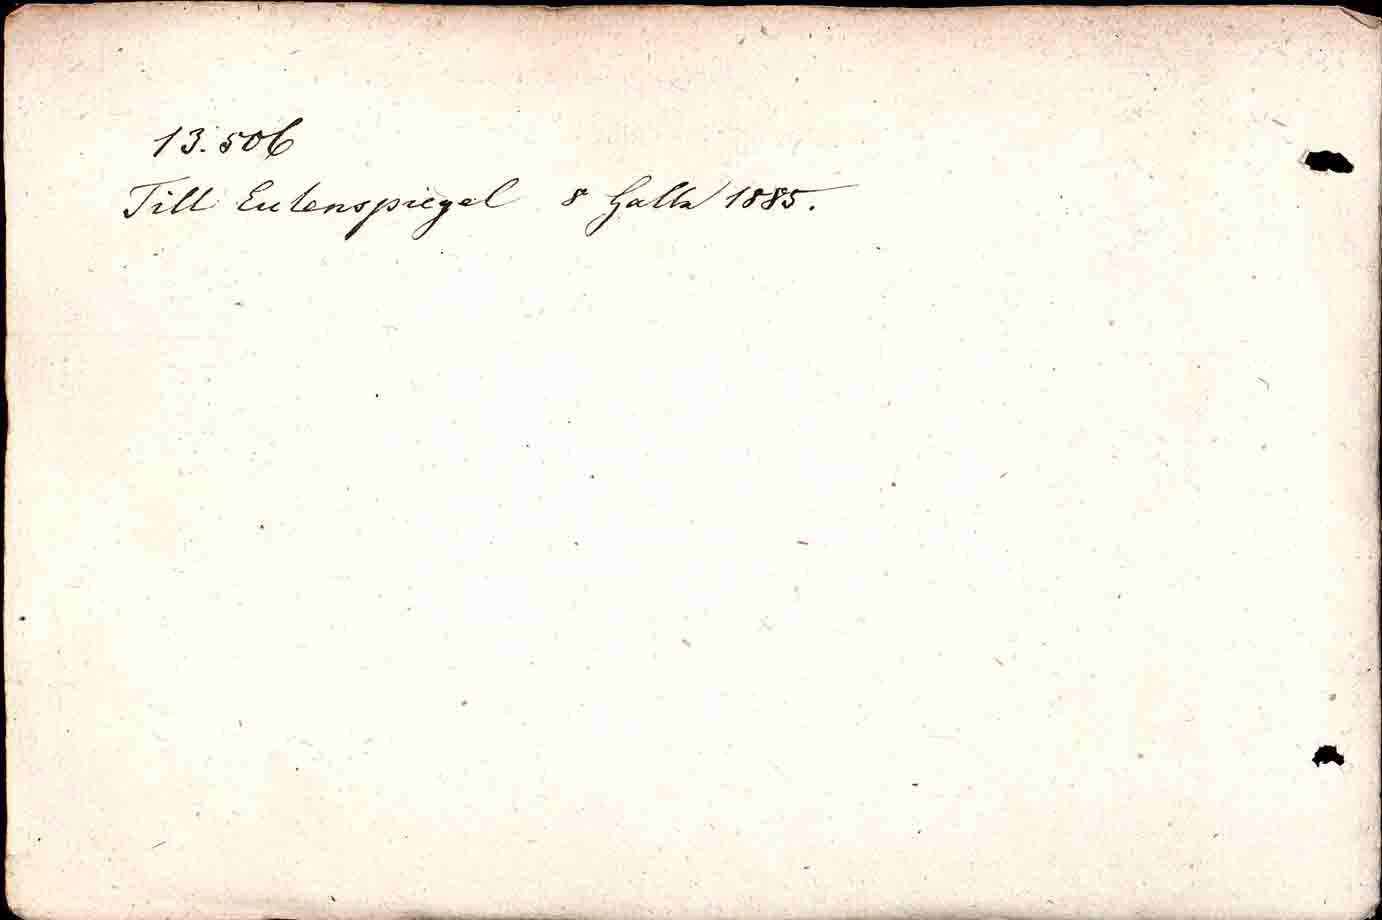 13.506
Till Eulenspiegel 8 Halle 1885.